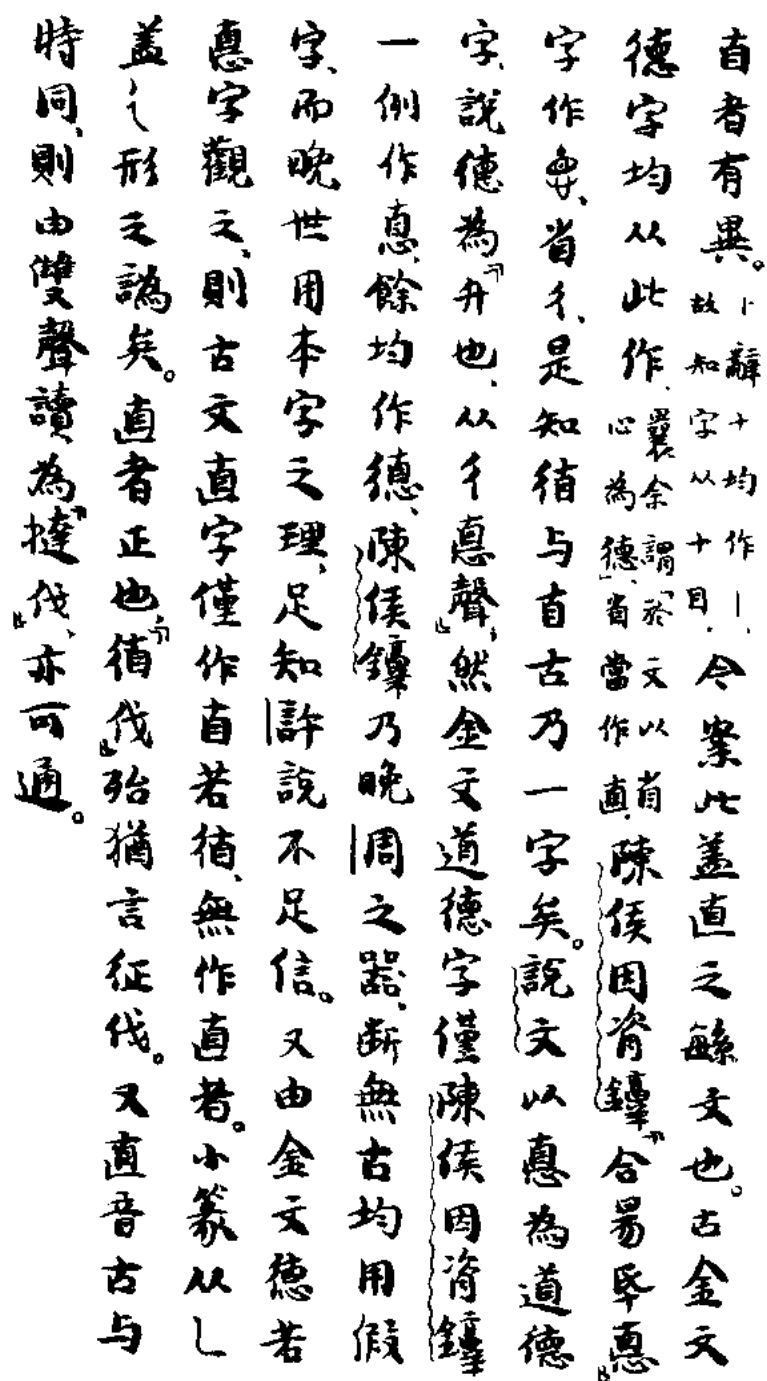 𥄂者有異。卜辭十均作丨,故知字从十目。今案此蓋直之緐文也。古金文
德字均从此作,曩余謂「於文以𥄂心為德」,𥄂當作直,陳侯因𬱖鐘「合昜氒悳」
字作悳,省彳,是知徝与𥄂古乃一字矣。說文以悳為道德
字,說德為「升也,从彳悳聲」,然金文道德字僅陳侯因𬱖鐘
一例作悳,餘均作德,陳侯鐘乃晚周之器,断無古均用假
字,而晚世用本字之理,足知許說不足信。又由金文德若
悳字觀之,則古文直字僅作𥄂若徝,無作直者。小篆从乚
蓋彳形之譌矣。直者正也,「徝伐」殆猶言征伐。又直音古与
特同,則由雙聲讀為「撻伐」,亦可通。